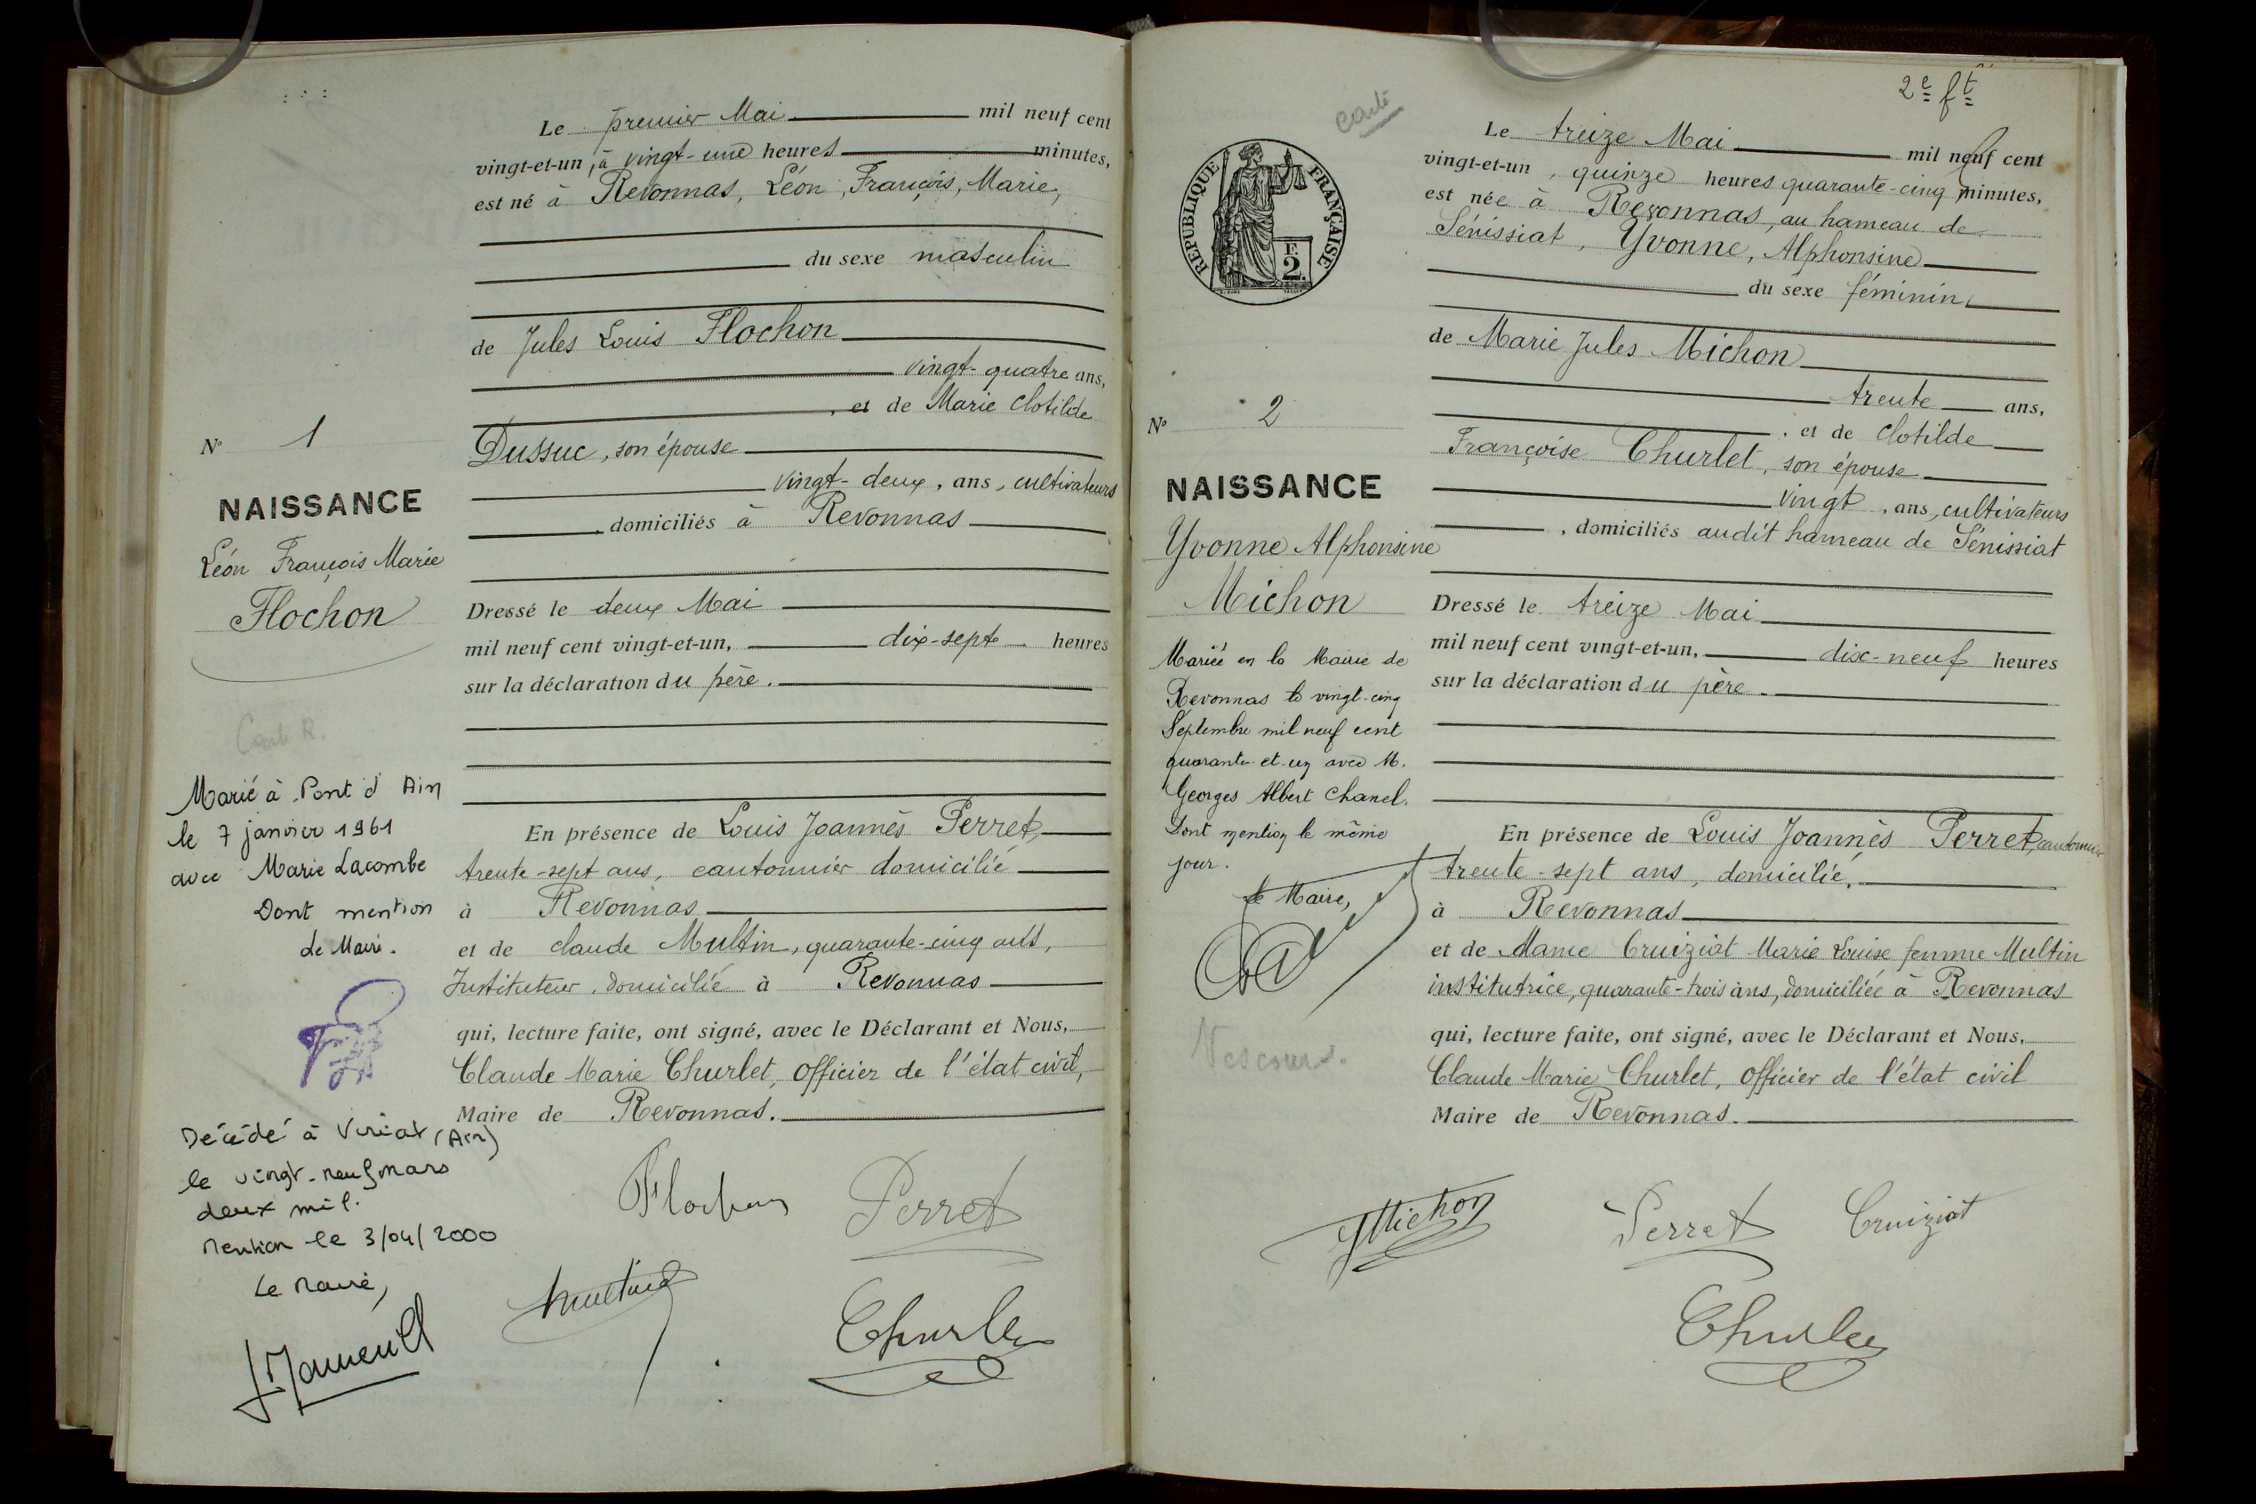 Le premier Mai mil neuf cent
vingt-et-un, à vingt-une heures minutes,
est né à Revonnas, Léon, François, Marie,
du sexe masculin
de Jules Louis Flochon
vingt-quatre ans,
, et de Marie Clotilde
Dussuc, son épouse
vingt-deux, ans, cultivateurs
domiciliés à Revonnas
Dressé le deux Mai
mil neuf cent vingt-et-un, dix-sept heures
sur la déclaration du père.
En présence de Louis Joannès Perret,
trente-sept ans, cantonnier domicilié
à Revonnas
et de Claude Multin, quarante-cinq ans,
Instituteur, domicilié à Revonnas
qui, lecture faite, ont signé, avec le Déclarant et Nous,
Claude Marie Churlet, officier de l'état civil,
Maire de Revonnas.
Flochon Perret
Multin Churlet
N° 1
NAISSANCE
Léon François Marie
Flochon
Marié à Pont d'Ain
le 7 janvier 1961
avec Marie Lacombe
Dont mention
Le Maire.
Décédé à Viriat (Ain)
le vingt-neuf mars
deux mil.
Mention le 3/04/2000
Le Maire,
2e ft
carte
REPUBLIQUE FRANÇAISE
F.
2.
Le treize Mai mil neuf cent
vingt-et-un, quinze heures quarante-cinq minutes,
est née à Revonnas, au hameau de
Sénissiat, Yvonne, Alphonsine
du sexe féminin,
de Marie Jules Michon
trente ans,
, et de Clotilde
Françoise Churlet, son épouse
vingt, ans, cultivateurs
, domiciliés audit hameau de Sénissiat
Dressé le treize Mai
mil neuf cent vingt-et-un, dix-neuf heures
sur la déclaration du père.
En présence de Louis Joannès Perret, cantonnier
trente-sept ans, domicilié,
à Revonnas
et de Mame Cruiziat Marie Louise femme Multin
institutrice, quarante-trois ans, domiciliée à Revonnas
qui, lecture faite, ont signé, avec le Déclarant et Nous,
Claude Marie Churlet, officier de l'état civil
Maire de Revonnas.
JMichon Perret Cruiziat
Churlet
N° 2
NAISSANCE
Yvonne Alphonsine
Michon
Mariée en la Mairie de
Revonnas le vingt-cinq
Septembre mil neuf cent
quarante-et-un avec M.
Georges Albert Chanel.
Dont mention le même
jour.
Le Maire,